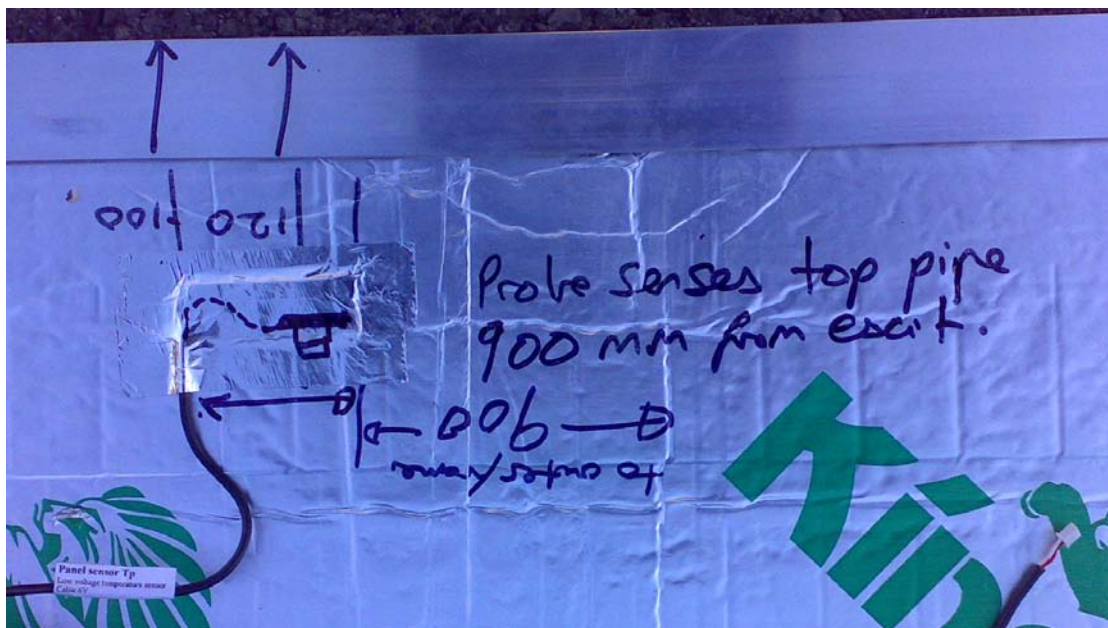 100
120
Probe senses top pipe
900 mm from exit.
900
Panel sensor Tp
Low voltage temperature sensor
Cable 6V
Kin